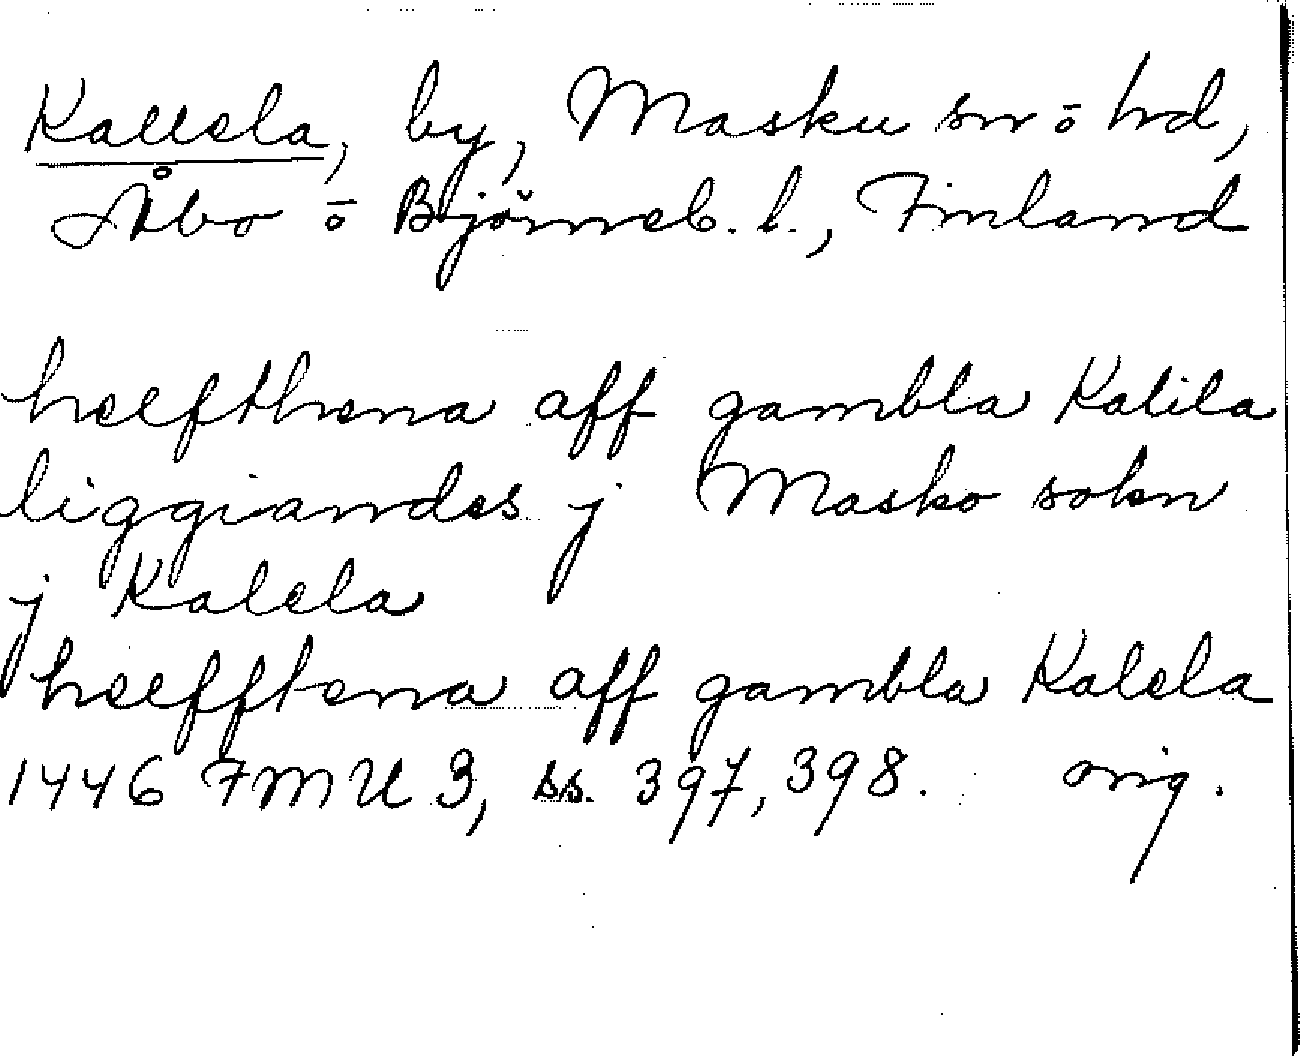 Kallela, by, Masku sn ō hd,
Åbo ō Björneb. l., Finland
hælfthena aff gambla Kalila
liggiandes j Masko sokn
j Kalela
hælfftena aff gambla Kalela
1446 FMU 3, ss. 397, 398. orig.